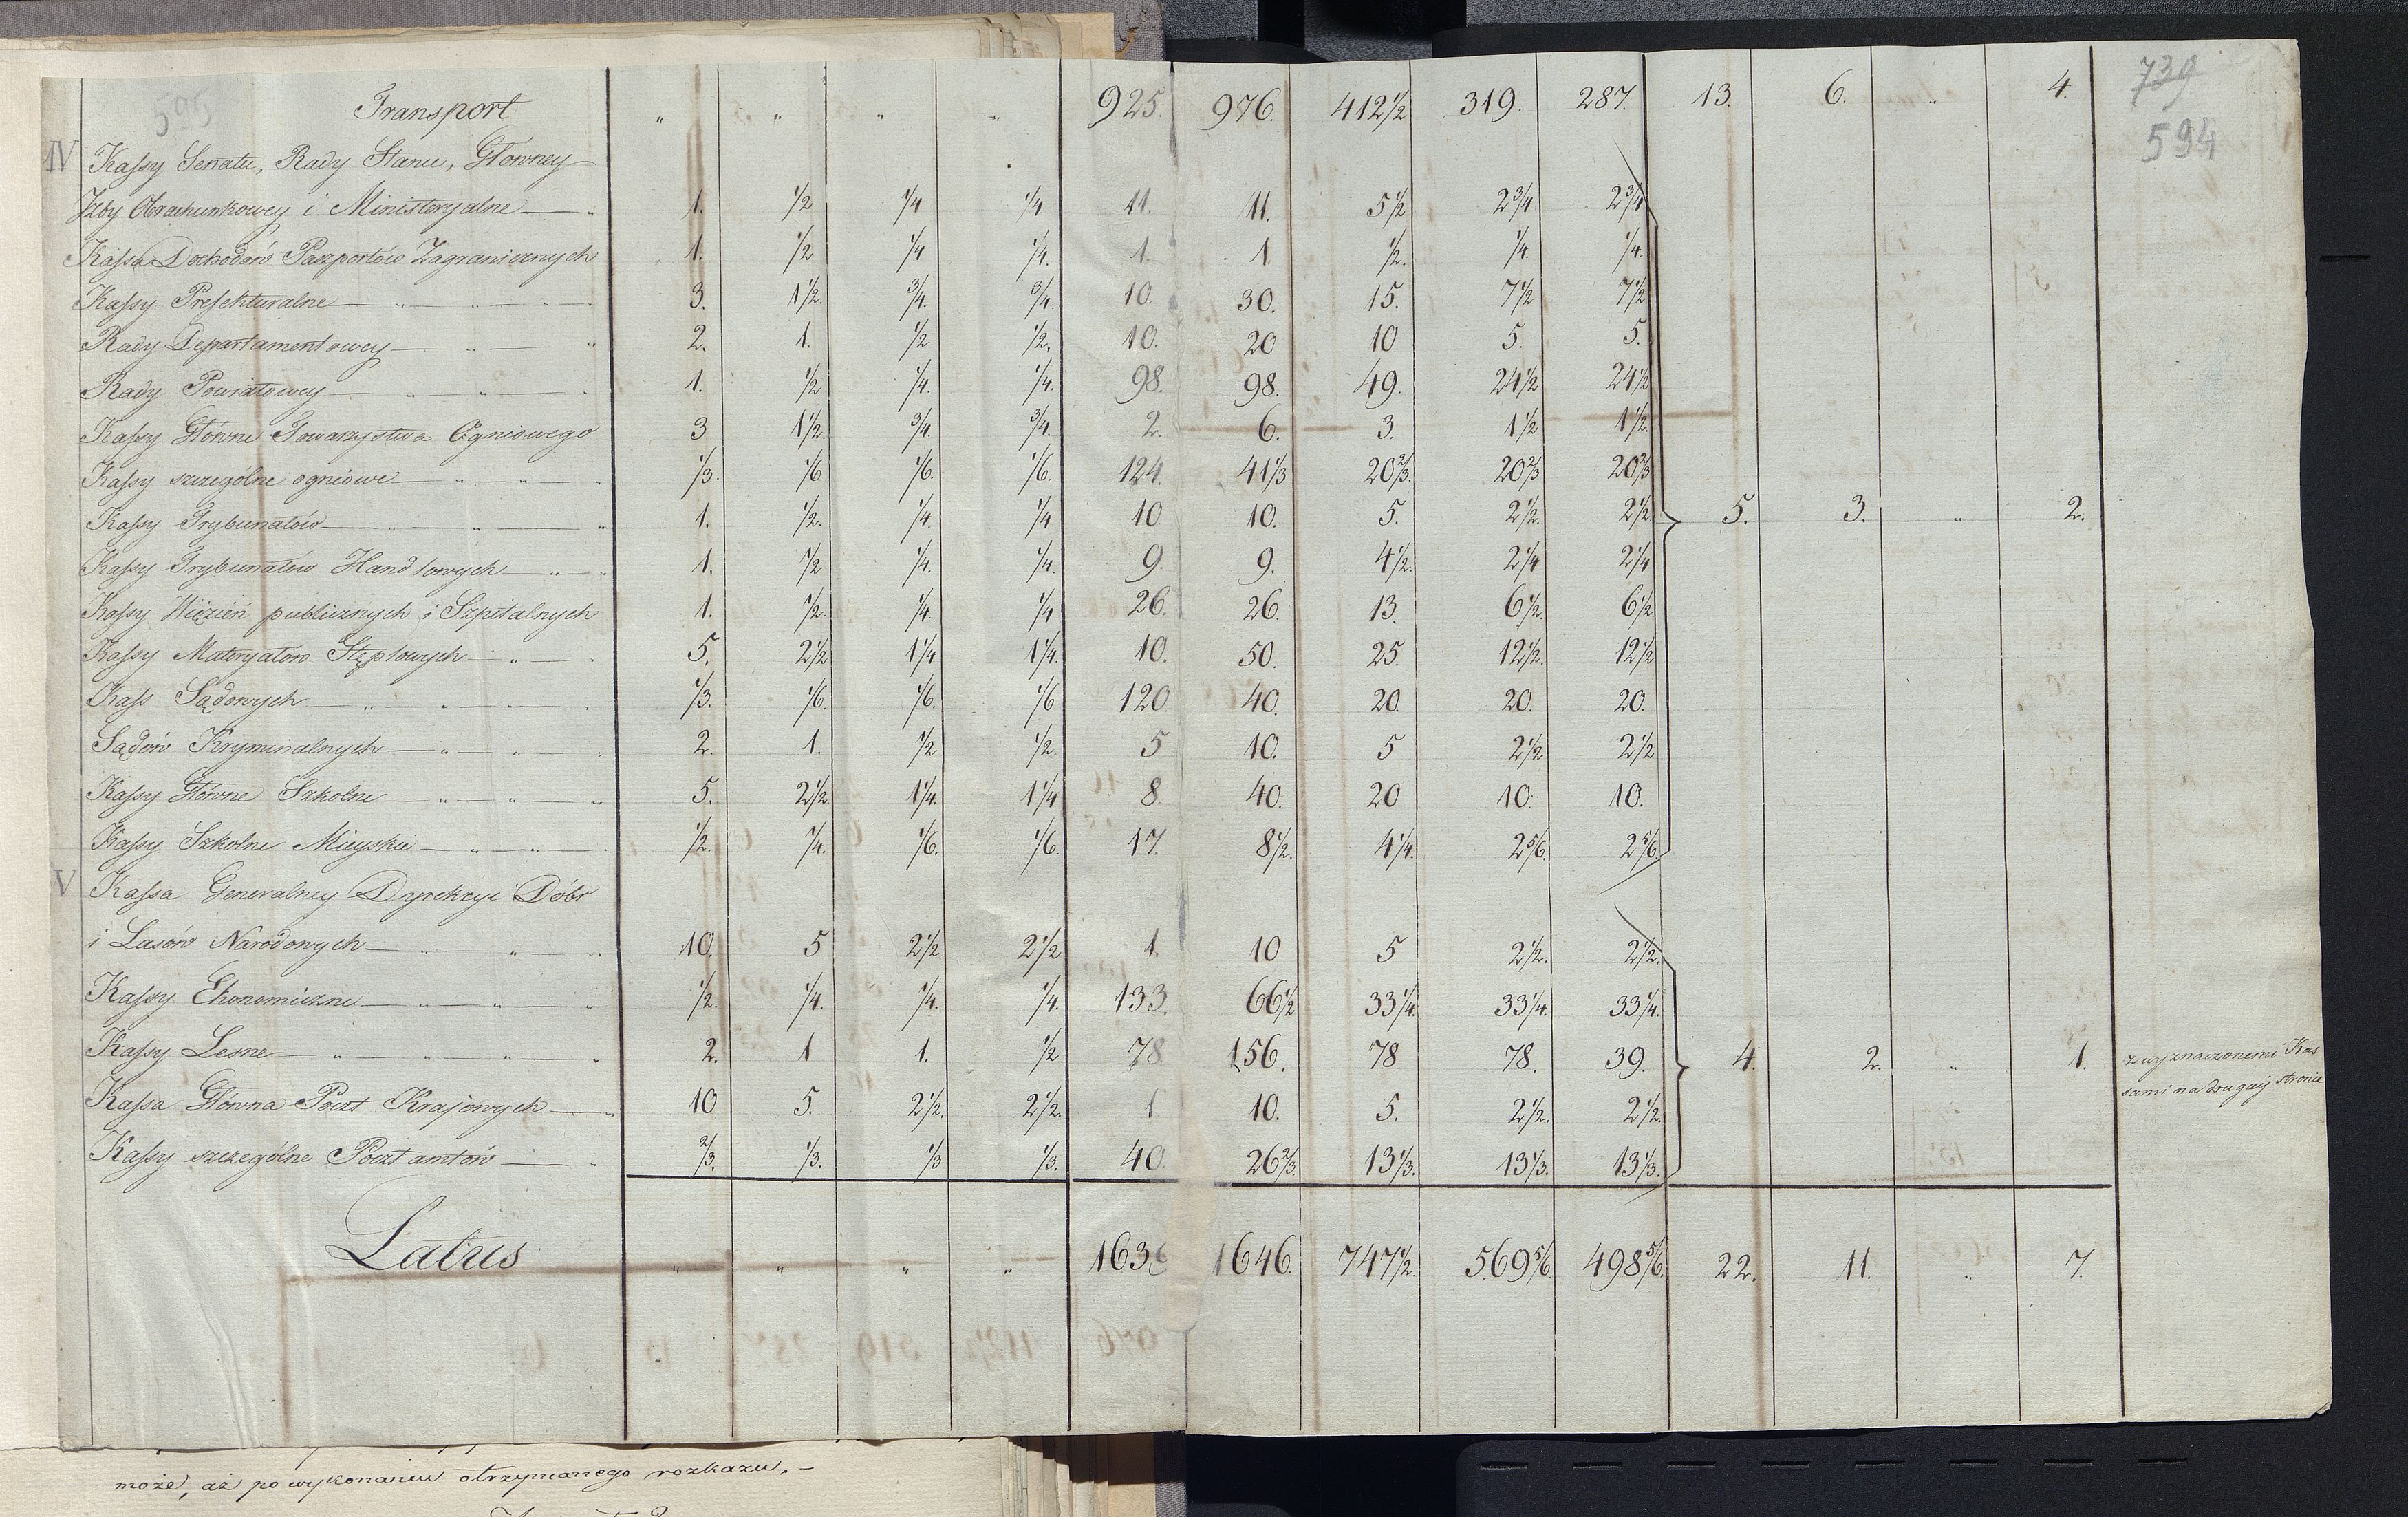 595
Transport " " " " 925. 976. 412½ 319. 287. 13. 6. " 4. 739
594
IV Kassy Senatu, Rady Stanu, Główney
Jzby Obrachunkowey i Ministeryalne 1. ½ ¼ ¼ 11. 11. 5½ 2¾ 2¾
Kassa Dochodów Paszportów Zagranicznych 1. ½ ¼ ¼. 1. 1 ½. ¼. ¼.
Kassy Prefekturalne 3. 1½. ¾. ¾. 10. 30. 15. 7½ 7½
Rady Departamentowey 2. 1. ½ ½. 10. 20 10 5. 5.
Rady Powiatowey 1. ½ ¼. ¼. 98. 98. 49. 24½ 24½
Kassy Główne Towarzystwa Ogniowego 3 1½. ¾. ¾. 2. 6. 3. 1½ 1½.
Kassy szczególne ogniowe ⅓. ⅙ ⅙. ⅙. 124. 41⅓ 20⅔. 20⅔ 20⅔
Kassy Trybunałów 1. ½. ¼. ¼ 10. 10. 5. 2½. 2½. 5. 3. " 2.
Kassy Trybunałów Handlowych 1. ½ ¼. ¼. 9. 9. 4½. 2¼ 2¼
Kassy Więzień publicznych i Szpitalnych 1. ½. ¼. ¼ 26. 26. 13. 6½. 6½
Kassy Materyałów Stęplowych 5. 2½ 1¼ 1¼. 10. 50. 25. 12½. 12½
Kass Sądowych ⅓. ⅙. ⅙. ⅙ 120. 40. 20. 20. 20.
Sądów Kryminalnych 2. 1. ½ ½. 5 10. 5 2½ 2½
Kassy Główne Szkolne 5. 2½. 1¼. 1¼ 8. 40. 20 10. 10.
Kassy Szkolne Mieyskie ½. ¼. ⅙. ⅙. 17. 8½. 4¼. 2⅚. 2⅚.
V Kassa Generalney Dyrekcyi Dóbr
i Lasów Narodowych 10. 5 2½. 2½ 1. 10 5 2½. 2½.
Kassy Ekonomiczne ½. ¼. ¼. ¼. 133. 66½ 33¼. 33¼. 33¼.
Kassy Lesne 2. 1 1. ½ 78 156. 78 78. 39. 4. 2. " 1. z wyznaczonemi Kas
sami na drugiey stronie
Kassa Główna Poczt Krajowych 10 5. 2½. 2½. 1 10. 5. 2½. 2½.
Kassy szczególne Pocztamtów ⅔. ⅓. ⅓ ⅓. 40. 26⅔. 13⅓. 13⅓. 13⅓.
Latus " " " " 1636 1646. 747½. 569⅚. 498⅚. 22. 11. " 7.
może, aż po wykonaniu otrzymanego rozkazu. –